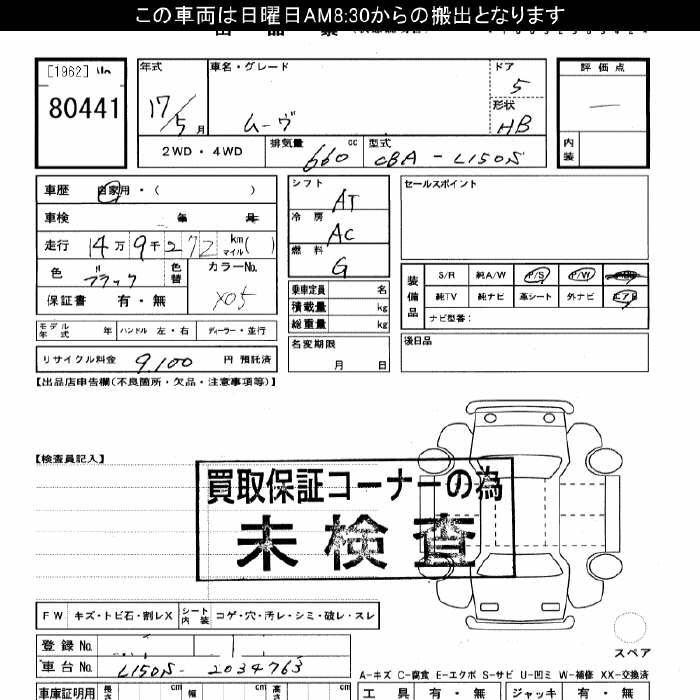 この車両は日曜日AM8:30からの搬出となります
[1962]
80441
年式
17/5月
車名・グレード
ムーヴ
ドア
5
形状
HB
評価点
内装
2WD・4WD
排気量
660 cc
型式
CBA-L150S
車歴 自家用・( )
車検 年 月
走行 14万9千272 km マイル( )
色 ブラック 色替
カラーNo.
X05
保証書 有・無
モデル年式 年 ハンドル 左・右 ディーラー・並行
リサイクル料金 9,100 円 預託済
シフト AT
冷房 AC
燃料 G
乗車定員 名
積載量 kg
総重量 kg
名変期限
月 日
セールスポイント
装備品
S/R 純A/W P/S P/W
純TV 純ナビ 革シート 外ナビ エアB
ナビ型番:
後日品
【出品店申告欄(不良箇所・欠品・注意事項等)】
【検査員記入】
買取保証コーナーの為
未検査
FW キズ・トビ石・割レX シート内装 コゲ・穴・汚レ・シミ・破レ・スレ
スペア
登録No.
車台No. L150S-2034763
A-キズ C-腐食 E-エクボ S-サビ U-凹ミ W-補修 XX-交換済
車庫証明用 長さ cm 幅 cm 高さ cm
工具 有・無 ジャッキ 有・無